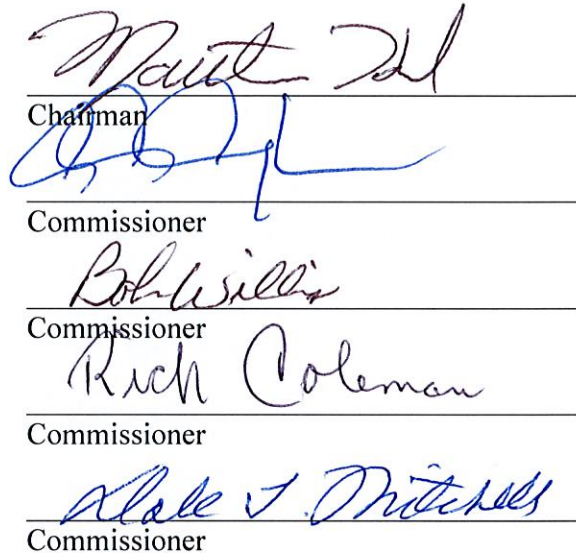 Chairman
Commissioner
Bob Willis
Commissioner
Rich Coleman
Commissioner
Dale J. Mitchell
Commissioner